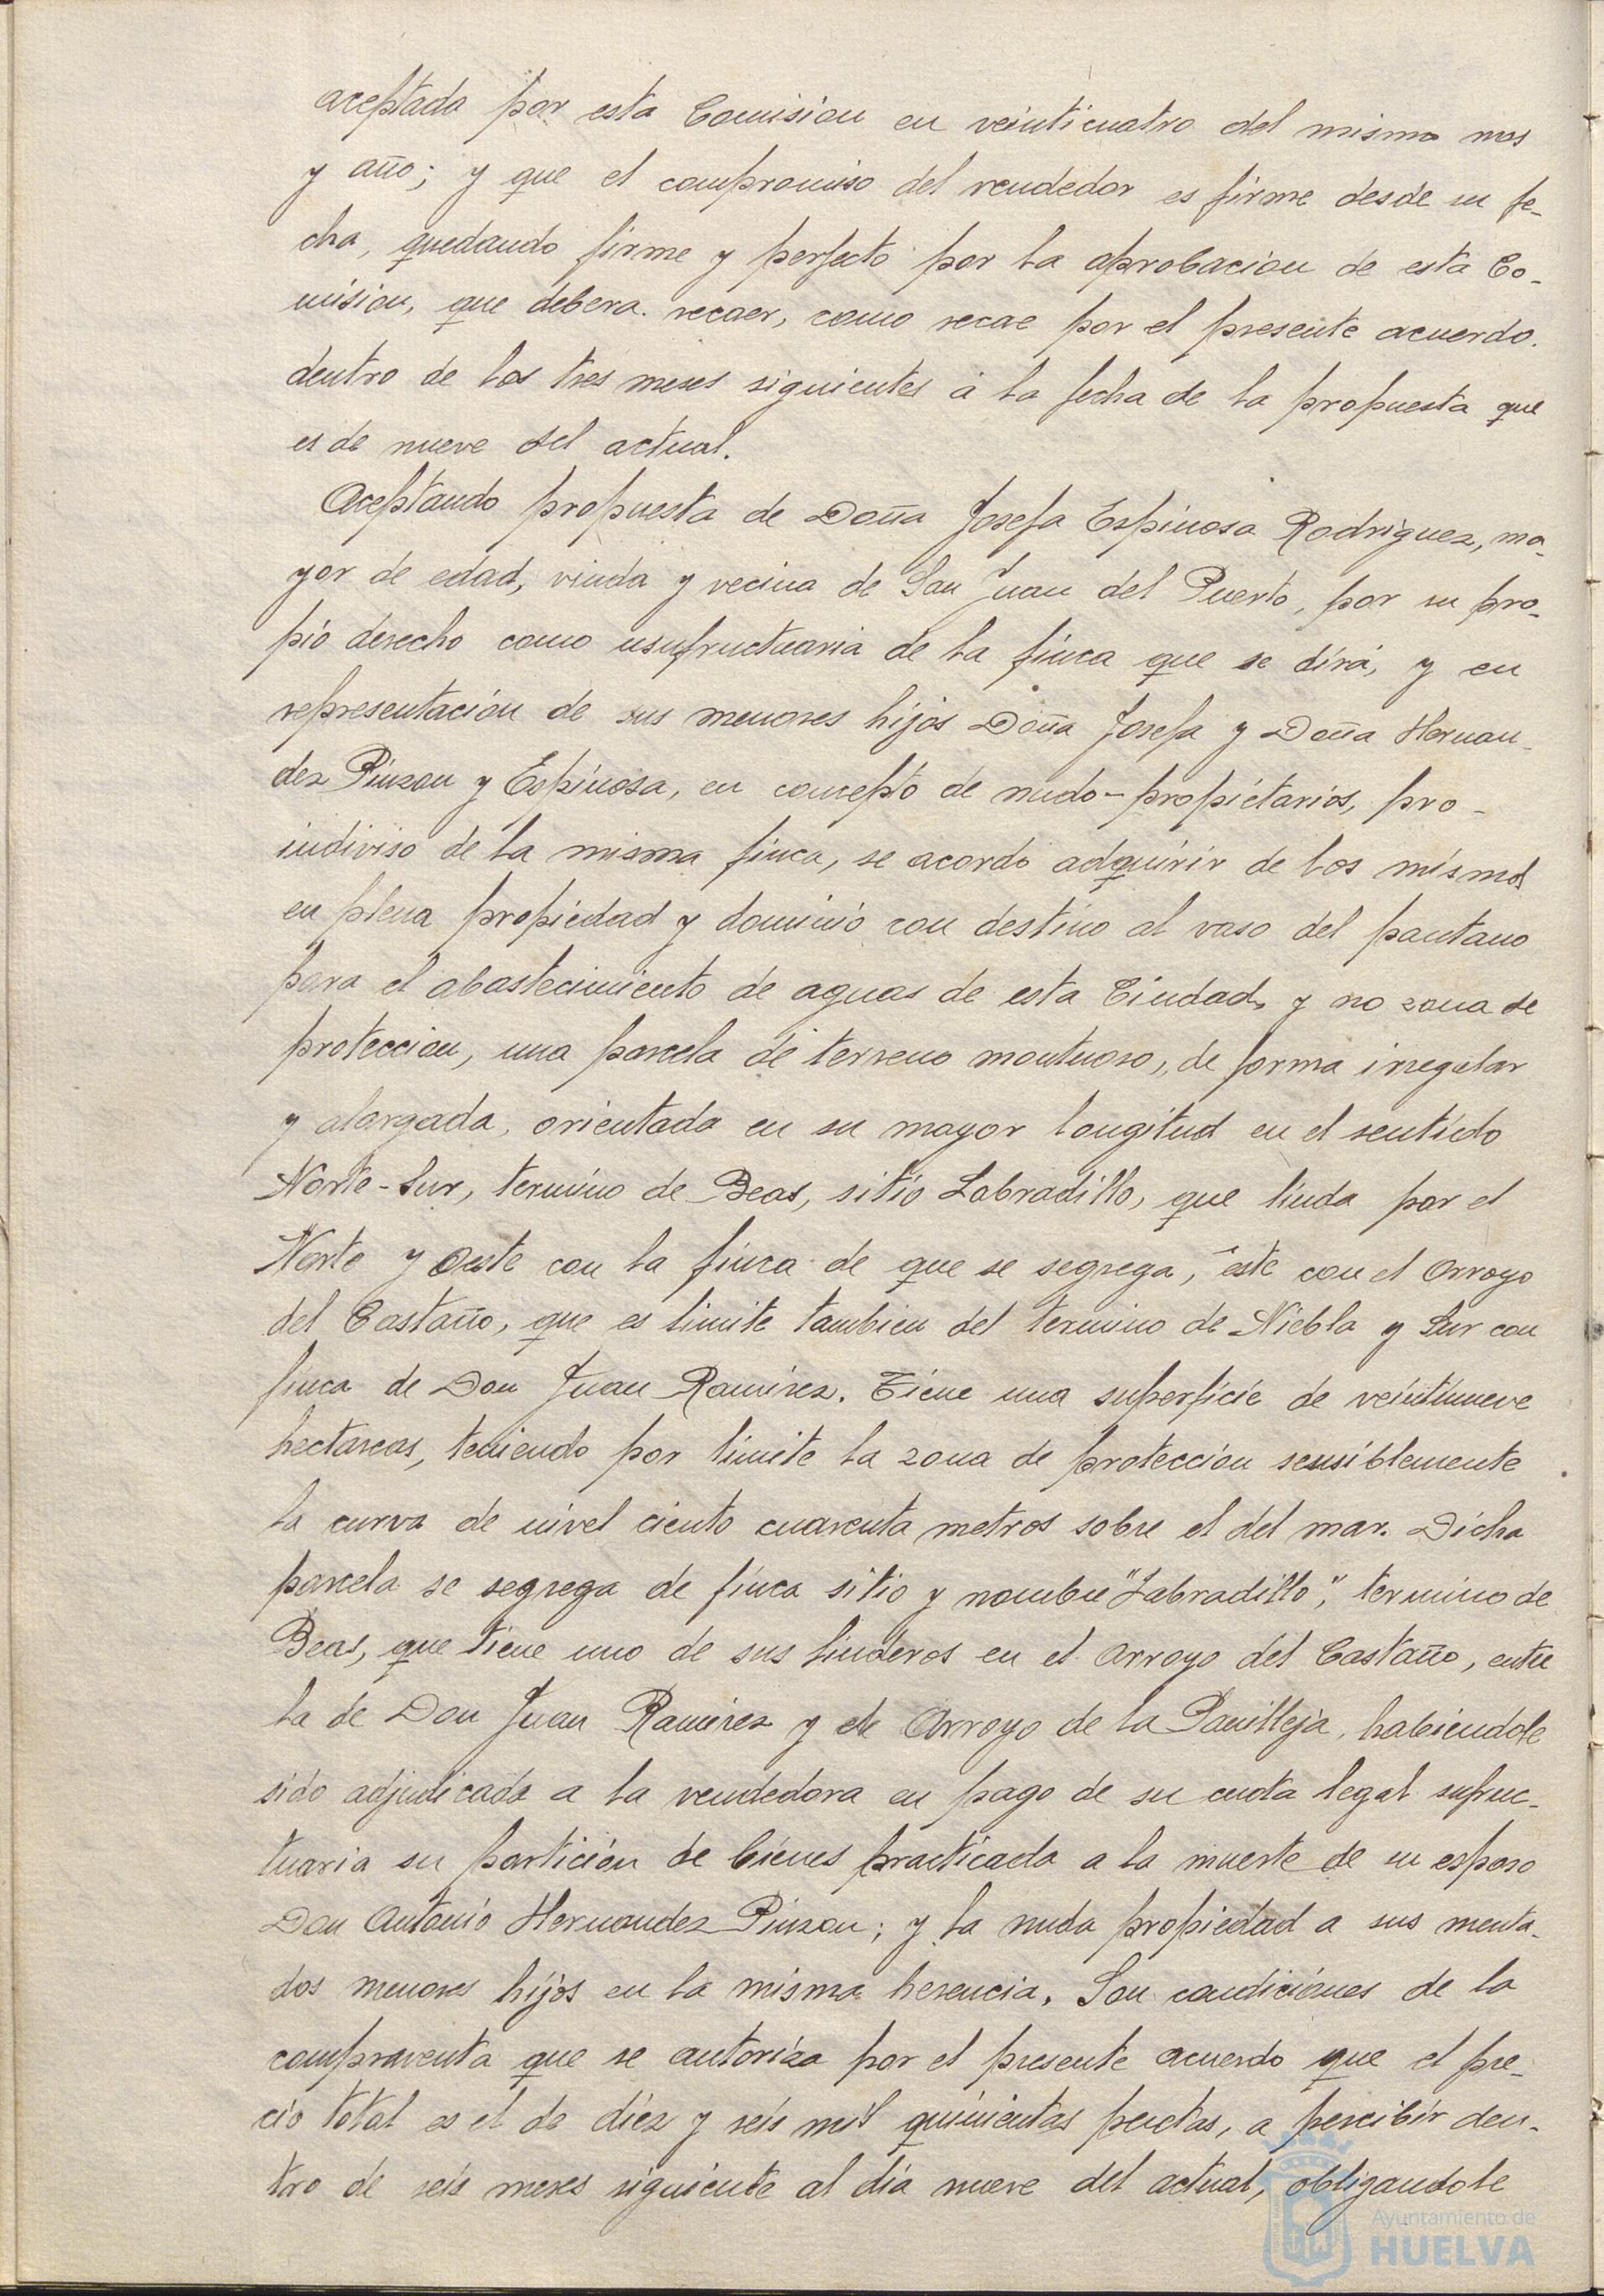 aceptada por esta Comision en veinticuatro del mismo mes
y año; y que el compromiso del vendedor es firme desde su fe-
cha, quedando firme y perfecto por la aprobacion de esta Co-
mision, que debera recaer, como recae por el presente acuerdo.
dentro de los tres meses siguientes á la fecha de la propuesta que
es de nueve del actual.
Aceptando propuesta de Doña Josefa Espinosa Rodriguez, ma-
yor de edad, viuda y vecina de San Juan del Puerto, por su pro-
pio derecho como usufructuaria de la finca que se dirá, y en
representación de sus menores hijos Doña Josefa y Doña Hernan-
dez Pinzon y Espinosa, en concepto de nudo-propietarios, pro-
indiviso de la misma finca, se acordo adquirir de los mismos
en plena propiedad y dominio con destino al vaso del pantano
para el abastecimiento de aguas de esta Ciudad, y no zona de
proteccion, una parcela de terreno montuoso, de forma irregular
y alargada, orientada en su mayor longitud en el sentido
Norte-Sur, termino de Beas, sitio Labradillo, que linda por el
Norte y Oeste con la finca de que se segrega, este con el Arroyo
del Castaño, que es limite tambien del termino de Niebla y Sur con
finca de Don Juan Ramirez. Tiene una superficie de veintinueve
hectareas, teniendo por limite la zona de protección sensiblemente
la curva de nivel ciento cuarenta metros sobre el del mar. Dicha
parcela se segrega de finca sitio y nombre "Labradillo", termino de
Beas, que tiene uno de sus linderos en el Arroyo del Castaño, entre
la de Don Juan Ramirez y el Arroyo de la Panilleja, habiendole
sido adjudicada a la vendedora en pago de su cuota legal sufruc-
tuaria su partición de bienes practicada a la muerte de su esposo
Don Antonio Hernandez Pinzon; y la nuda propiedad a sus menta-
dos menores hijos en la misma herencia. Son condiciones de la
compraventa que se autoriza por el presente acuerdo que el pre-
cio total es el de diez y seis mil quinientas pesetas, a percibir den-
tro de seis meses siguiente al dia nueve del actual, obligandole
Ayuntamiento de
HUELVA